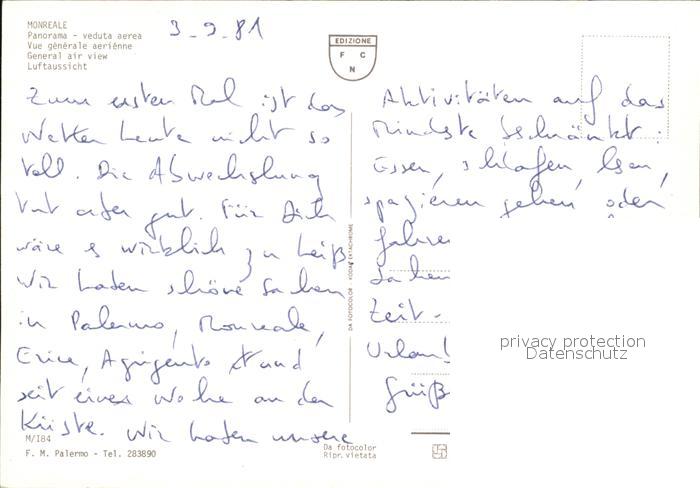 MONREALE
Panorama - veduta aerea
Vue générale aérienne
General air view
Luftaussicht
3-9-81
EDIZIONE
F C
N
Zum ersten Mal ist das
Wetter heute nicht so
toll. Die Abwechslung
tut aber gut. Für Dich
wäre es wirklich zu heiß
Wir haben schöne Sachen
in Palermo, Monreale,
Erice, Agrigento und
seit einer Woche an der
Küste. Wir haben unsere
M/184
F. M. Palermo - Tel. 283890
DA FOTOCOLOR KODAK EKTACHROME
Da fotocolor
Ripr. vietata
Aktivitäten auf das
Mindste beschränkt:
Essen, schlafen, lesen,
spazieren gehen oder
fahre
Sachen
Zeit-
Urlau
Grüß
privacy protection
Datenschutz